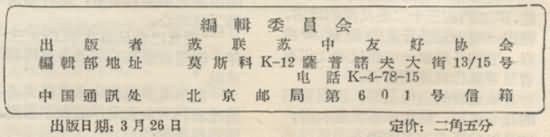 編輯委員会
出版者 苏联苏中友好协会
編輯部地址 莫斯科K-12薩普諾夫大街13/15号
电話K-4-78-15
中国通訊处 北京邮局第601号信箱
出版日期:3月26日 定价:二角五分